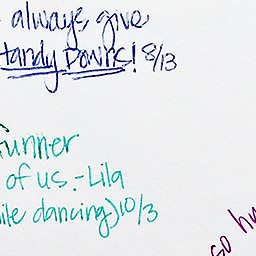 always give
Handy Downs! 8/13
funner
of us.-Lila
ile dancing) 10/3
go hu